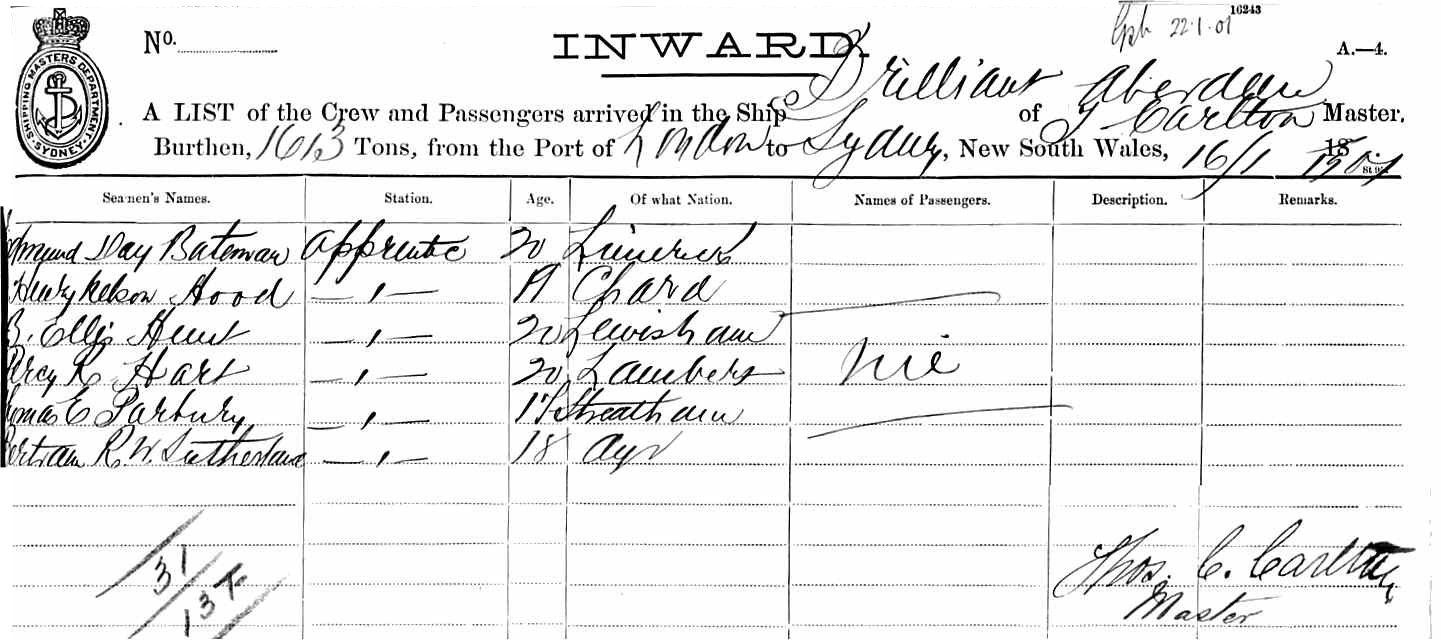 16243
22.1.01
No.
INWARD.
A.—4.
SHIPPING MASTERS DEPARTMENT. SYDNEY.
A LIST of the Crew and Passengers arrived in the Ship Brilliant of Aberdeen
T Carlton Master,
Burthen, 1613 Tons, from the Port of London to Sydney, New South Wales, 16/1 1901
Seamen's Names. Station. Age. Of what Nation. Names of Passengers. Description. Remarks.
Edmund Day Bateman Apprentic 20 Limerick
Henry Kelson Hood — " — 19 Chard
Ellis Hunt — " — 20 Lewisham
Percy R Hart — " — 20 Lambeth nil
Thomas E Parbury — " — 17 Streatham
Bertram R. W. Sutherland — " — 18 Ayr
31
13
Thos. C. Carlton
Master